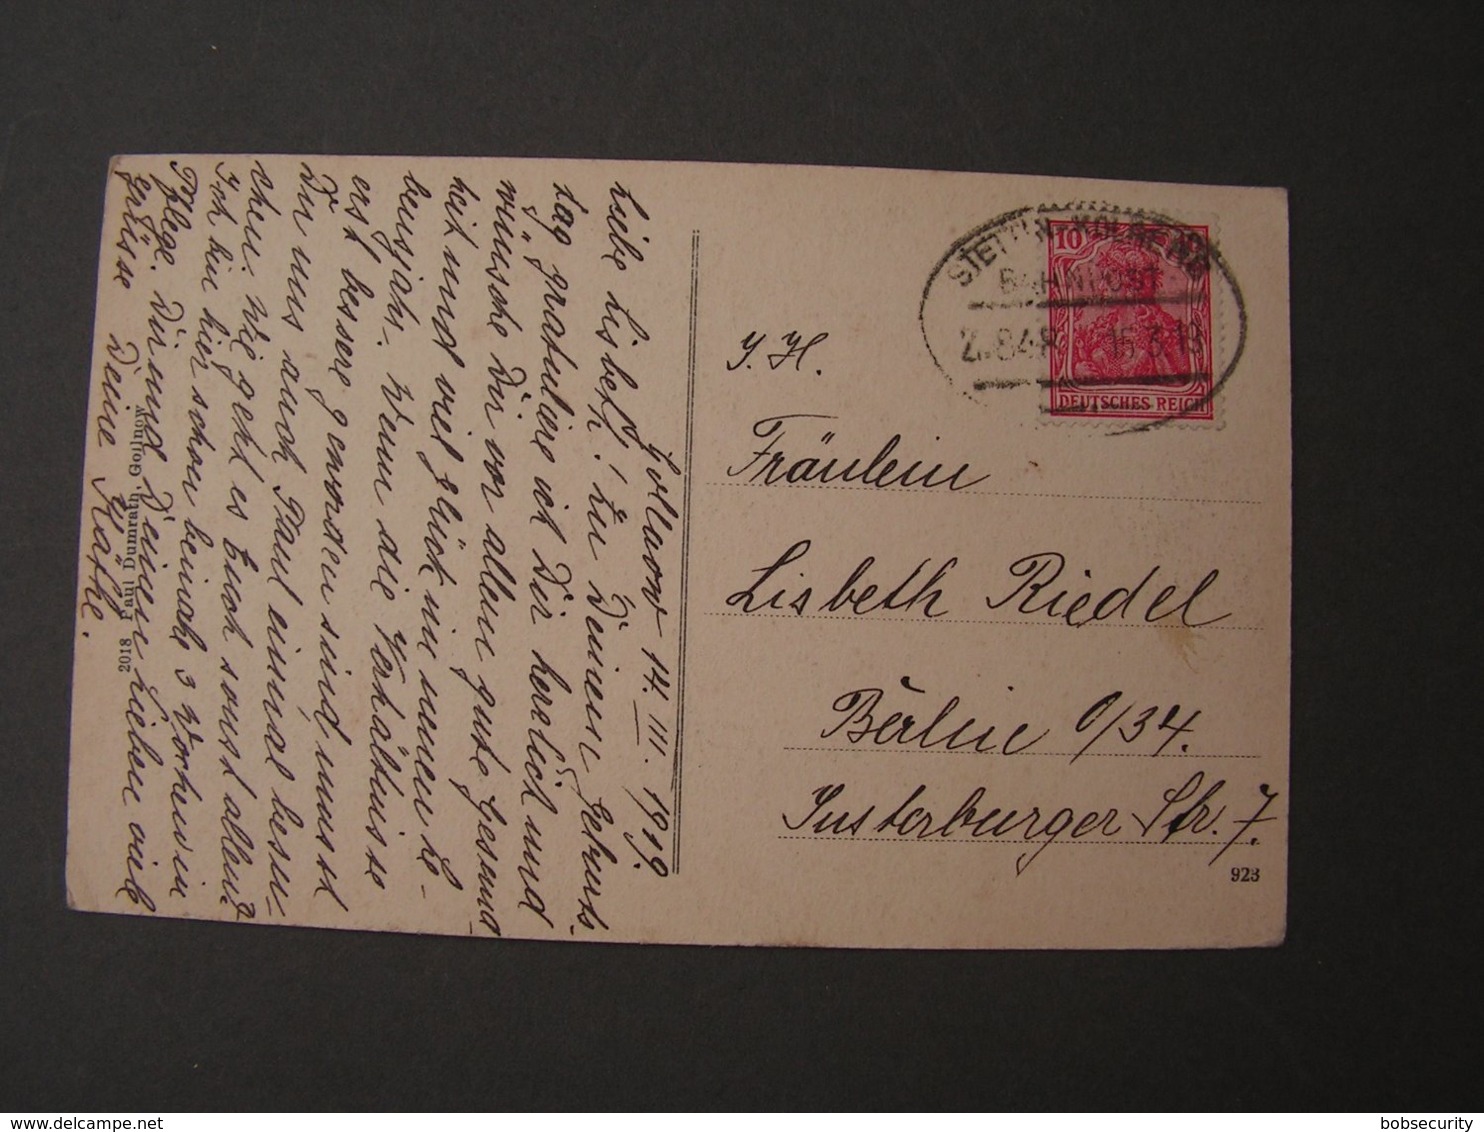 Gollnow 14. III. 1919.
Liebe Lisbeth! Zu Deinem Geburts-
tag gratuliere ich Dir herzlich und
wünsche Dir vor allem gute Gesund-
heit und viel Glück im neuen Le-
bensjahr. Wenn die Verhältnisse
erst besser geworden sind musst
Du uns auch Paul einmal besu-
chen. Wie geht es Euch sonst allen?
Ich bin hier schon beinah 3 Wochen in
Pflege. Dir und Deinen Lieben viele
Grüsse Deine Käthe.
2018 Paul Dumrath, Gollnow
STETTIN-KOLBERG
BAHNPOST
Z. 848 15.3.19
10
DEUTSCHES REICH
I. H.
Fräulein
Lisbeth Riedel
Berlin O/34.
Insterburger Str. 7.
923
bobsecurity